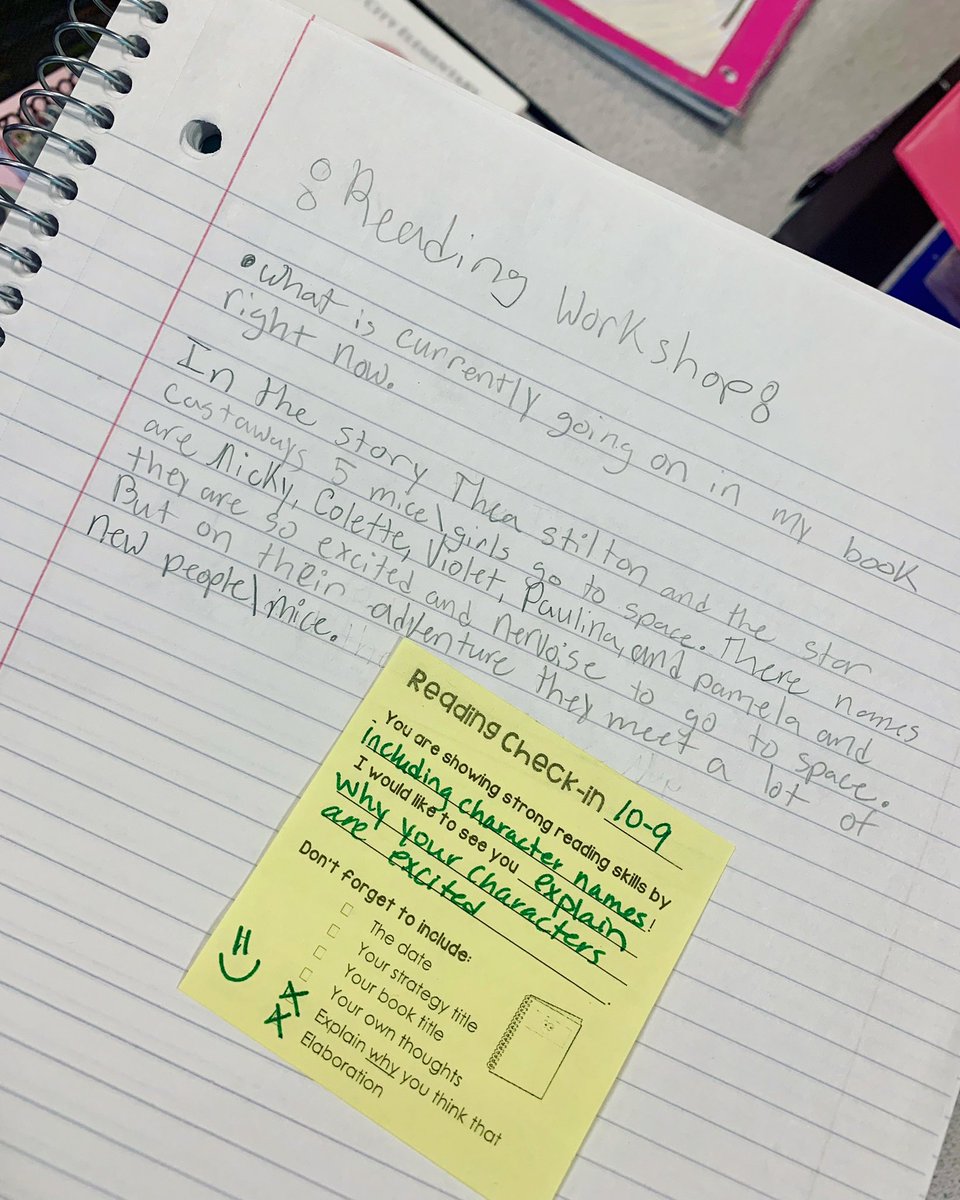 CITY ELEMENTARY
Reading Workshop
•What is currently going on in my book
right now.
In the story Thea stilton and the star
castaways 5 mice\girls go to space. There names
are Nicky, Colette, Violet, Paulina, and pamela and
they are so excited and nervoise to go to space.
But on their adventure they meet a lot of
new people\mice.
Reading Check-in 10-9
You are showing strong reading skills by
including character names!
I would like to see you explain
why your characters
are excited.
Don't forget to include:
The date
Your strategy title
Your book title
Your own thoughts
Explain why you think that
Elaboration